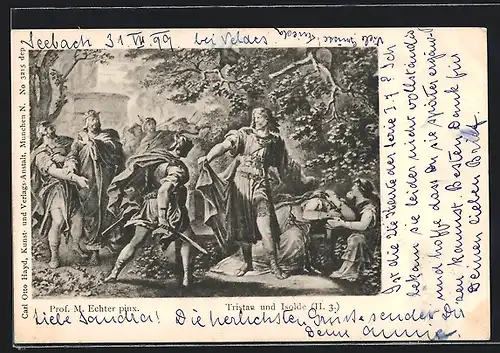 Seebach 31 VII 99. bei Veldes
Viele Grüsse,
Carl Otto Hayd, Kunst- und Verlags-Anstalt, München N. No 3215 dep
Prof. M. Echter pinx.
Tristan und Isolde (II. 3.)
Liebe Sandra! Die herzlichsten Grüsse sendet
Deine Annie.
Ist die 2te Karte der Serie 3.7? Ich
bekam sie leider nicht vollständig
und hoffe dass Du sie später ergänzen
kannst. Besten Dank für
Deinen lieben Brief.